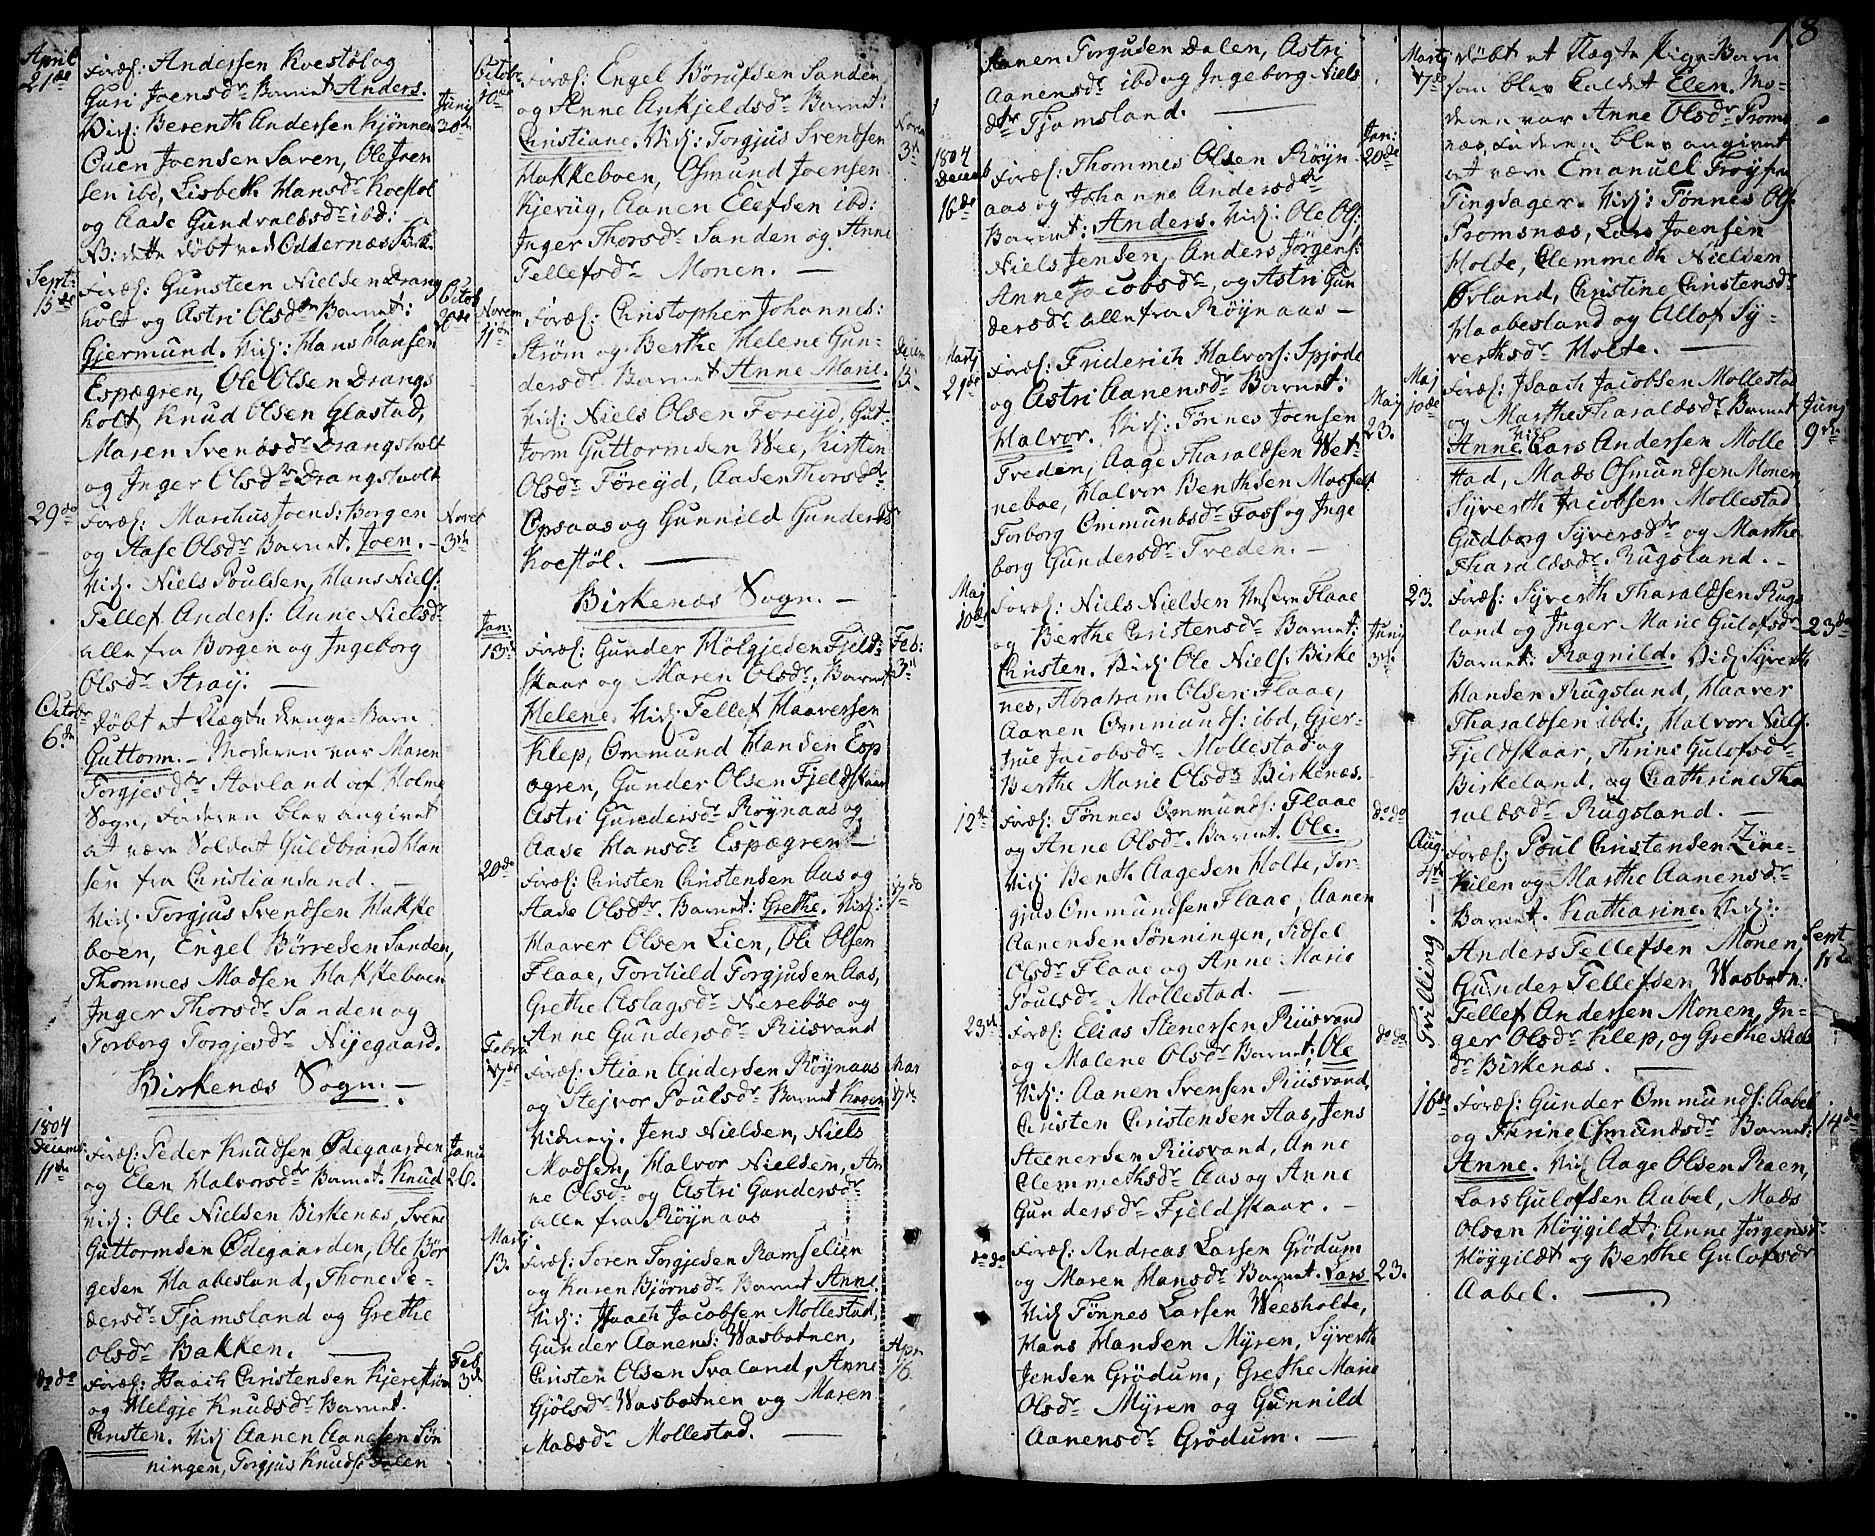 18
April
21de
Foræl: Andersen Kvestøl og
Guri Joensdr Barnet Anders.
Vid: Berenth Andersen Kjønnen
Ouen Joensen Saven, Ole Joen
sen ibd, Lisbeth Hansdr Koestøl
og Aase Gundvaldsdr ibd:
NB: dette døbt ved Oddernæs Kirk.
Juny
30te
Sept:
15de
Foræl: Gunsteen Nielsen Drang
holt og Astri Olsdr Barnet:
Gjermund. Vid: Hans Hansen
Espægren, Ole Olsen Drangs
holt, Knud Olsen Glastad,
Maren Svendsdr Drangsholt
og Inger Olsdr Drangsholt
Octob
20de
29de
Foræl: Marchus Joens: Borgen
og Aase Olsdr Barnet. Joen. -
Vid. Niels Poulsen, Hans Niels:
Tellef Anders: Anne Nielsdr
alle fra Borgen og Ingeborg
Olsdr Straj. -
Novbr
3de
Octobr
6te
Døbt et Uægte Drenge-Barn
Guttorm. - Moderen var Maren
Torgjesdr Aavland af Holme
Sogn, Faderen blev angivet
at være Soldat Guldbrand Han
sen fra Christiansand. -
Vid. Torgjus Svendsen Hakke
boen, Engel Børresen Sanden,
Thommes Madsen Hakkeboen
Inger Thorsdr Sanden og
Torborg Torgjesdr Nijegaard.
Birkenæs Sogn. -
1804
Decemb
11te
Foræl: Peder Knudsen Ødegaarden
og Elen Halvorsdr Barnet. Knud
Vid: Ole Nielsen Birkenæs, Svend
Guttormsen Ødegaarden, Ole Bør
gesen Haabesland, Thone Pe-
dersdr Tjamsland og Grethe
Olsdr Bakken. -
Janu
26.
do do
Foræl: Isaach Christensen Kjerestrøm
og Helgje Knudsdr Barnet.
Christen. Vid Aanen Aanesen Søn
ningen, Torgjus Knudse Dalen
Feb
3de
Octobr
10de
Foræl: Engel Børufsen Sanden
og Anne Ankjeldsdr Barnet:
Christiane. Vid: Torgjus Svendsen
Hakkeboen, Osmund Joensen
Kjerüg, Aanen Elefsen ibd:
Inger Thorsdr Sanden og Anne
Tellefsdr Monen. -
Novem
3de
Novem
11te
Foræl: Christopher Johannes:
Strøm og Berthe Helene Gun-
dersdr Barnet Anne Marie.
Vid: Niels Olsen Foreijd, Gut-
torm Guttormsen Wee, Kirsten
Olsdr Föreijd, Aase Thorsdr
Opsaas og Gunnild Gundersdr
Koestöl. -
Decem
13.
Birkenæs Sogn. -
Jan:
13de
Foræl: Gunder Hölgjesen Fjeld-
skaar og Maren Olsdr. Barnet
Helene. Vid: Tellef Haaversen
Klep, Ommund Hansen Esp
ægren, Gunder Olsen Fjeldskaar
Astri Gundersdr Röynaas og
Aase Hansdr Espægren -
Feb:
3de
20de
Foræl: Christen Christensen Aas og
Aase Olsdr. Barnet: Grethe. Vid:
Haaver Olsen Lien, Ole Olsen
Flaae, Torchild Torgjusen Aas,
Grethe Aslagsdr Nereböe og
Anne Gundersdr Riisvand
17de
Febru
17de
Foræl: Stian Andersen Röynaas
og Stejvor Poulsdr Barnet Karen
Vidnerj. Jens Nielsen, Niels
Madsen, Halvor Nielsen, An
ne Olsdr og Astri Gundersdr
alle fra Röynaas
Mar
17de
Martj
13.
Foræl: Sören Torgjesen Ramselien
og Karen Bjørnsdr Barnet Anne.
Vid: Isaach Jacobsen Mollestad,
Gunder Aanens: Wasbotnen,
Christen Olsen Svaland, Anne
Gjölsdr Wasbotnen og Maren
Madsdr Mollestad. -
Apr
16.
Aanen Torgusen Dalen, Astri
Aanensdr ibd og Ingeborg Niels
dr Tjamsland. -
1804
Decemb
16de
Foræl: Thommes Olsen Röyn
aas og Johanne Andersdr
Barnet: Anders. Vid: Ole Ols:
Niels Jensen, Anders Jörgens:
Anne Jacobsdr, og Astri Gun
dersdr alle fra Röynaas -
Jan:
20de
Martj
21de
Foræl: Friderich Halvors: Spjode
og Astri Aanensdr Barnet:
Halvor. Vid: Tønnes Joensen
Treden, Aage Tharaldsen Wet-
neboe, Halvor Benthsen Mosfell
Torborg Ommundsdr Foss og Inge
borg Gundersdr Treden. -
Maj
23.
Maj
10de
Foræl: Niels Nielsen Vestre Flaae
og Berthe Christensdr Barnet:
Christen. Vid: Ole Niels. Birke
nes, Abraham Olsen Flaae,
Aanen Ommunds: ibd, Gjer-
true Jacobsdr Mollestad og
Berthe Marie Olsdr Birkenæs.
Junj
3de
12te
Foræl: Tønnes Ommunds: Flaae
og Anne Olsdr Barnet. Ole.
Vid: Benth Aagesen Holte, Tor-
gjus Ommundsen Flaae, Aanen
Aanensen Sønningen, Sidsel
Olsdr Flaae og Anne Marie
Poulsdr Mollestad. -
do do
23de
Foræl: Elias Stenersen Riisvand
og Malene Olsdr Barnet; Ole
Vid: Aanen Svensen Riisvand,
Christen Christensen Aas, Jens
Steenersen Riisvand, Anne
Clemmethsdr Aas og Anne
Gundersdr Fjeldskaar. -
do do
do do
Foræl: Andreas Larsen Grödum
og Maren Hansdr Barnet. Lars
Vid Tønnes Larsen Weesholte,
Hans Hansen Myren, Syverth
Jensen Grödum, Grethe Marie
Olsdr Myren og Gunnild
Aanensdr Grödum. -
23.
Martj
17de
Døbt et Uægte Pige-Barn
som blev kaldet Elen. Mo-
deren var Anne Olsdr Proms
næs, Faderen blev angivet
at være Emanuell Tröysen
Tingsager. Vid: Tønnes Ols
Promsnæs, Lars Joensen
Holte, Clemmeth Nielsen
Ørland, Christine Christensdr
Haabesland og Allof Sy-
verthsdr Holte. -
Maj
10de
Foræl: Isaach Jacobsen Mollestad
og Marthe Tharaldsdr Barnet
Anne. Vid Lars Andersen Molle
stad, Mads Osmundsen Monen,
Syverth Jacobsen Mollestad
Gudborg Syversdr og Marthe
Tharaldsdr Rugsland. -
Junj
9de
23.
Foræl: Syverth Tharaldsen Rugs
land og Inger Marie Gulofsdr
Barnet: Ragnild. Vid Syverth
Hansen Rugsland, Haaver
Tharaldsen ibd; Halvor Niels
Fjeldskaar, Thrine Gulofsdr
Birkeland, og Chathrine Tha
raldsdr Rugsland. -
23de
Aug:
4de
Tvilling
Foræl: Poul Christensen Line-
kilen og Marthe Aanensdr
Barnet. Katharine. Vid:
Anders Tellefsen Monen,
Gunder Tellefsen Wasbotn:
Tellef Andersen Monen, In-
ger Olsdr Klep, og Grethe Niels
dr Birkenæs. -
Sept
16de
Foræl: Gunder Ommunds: Aabel
og Thrine Osmundsdr Barnet:
Anne. Vid Aage Olsen Raen,
Lars Gulofsen Aabel, Mads
Olsen Höygildt; Anne Jørgensdr
Höygildt og Berthe Gulofsdr
Aabel. -
14de